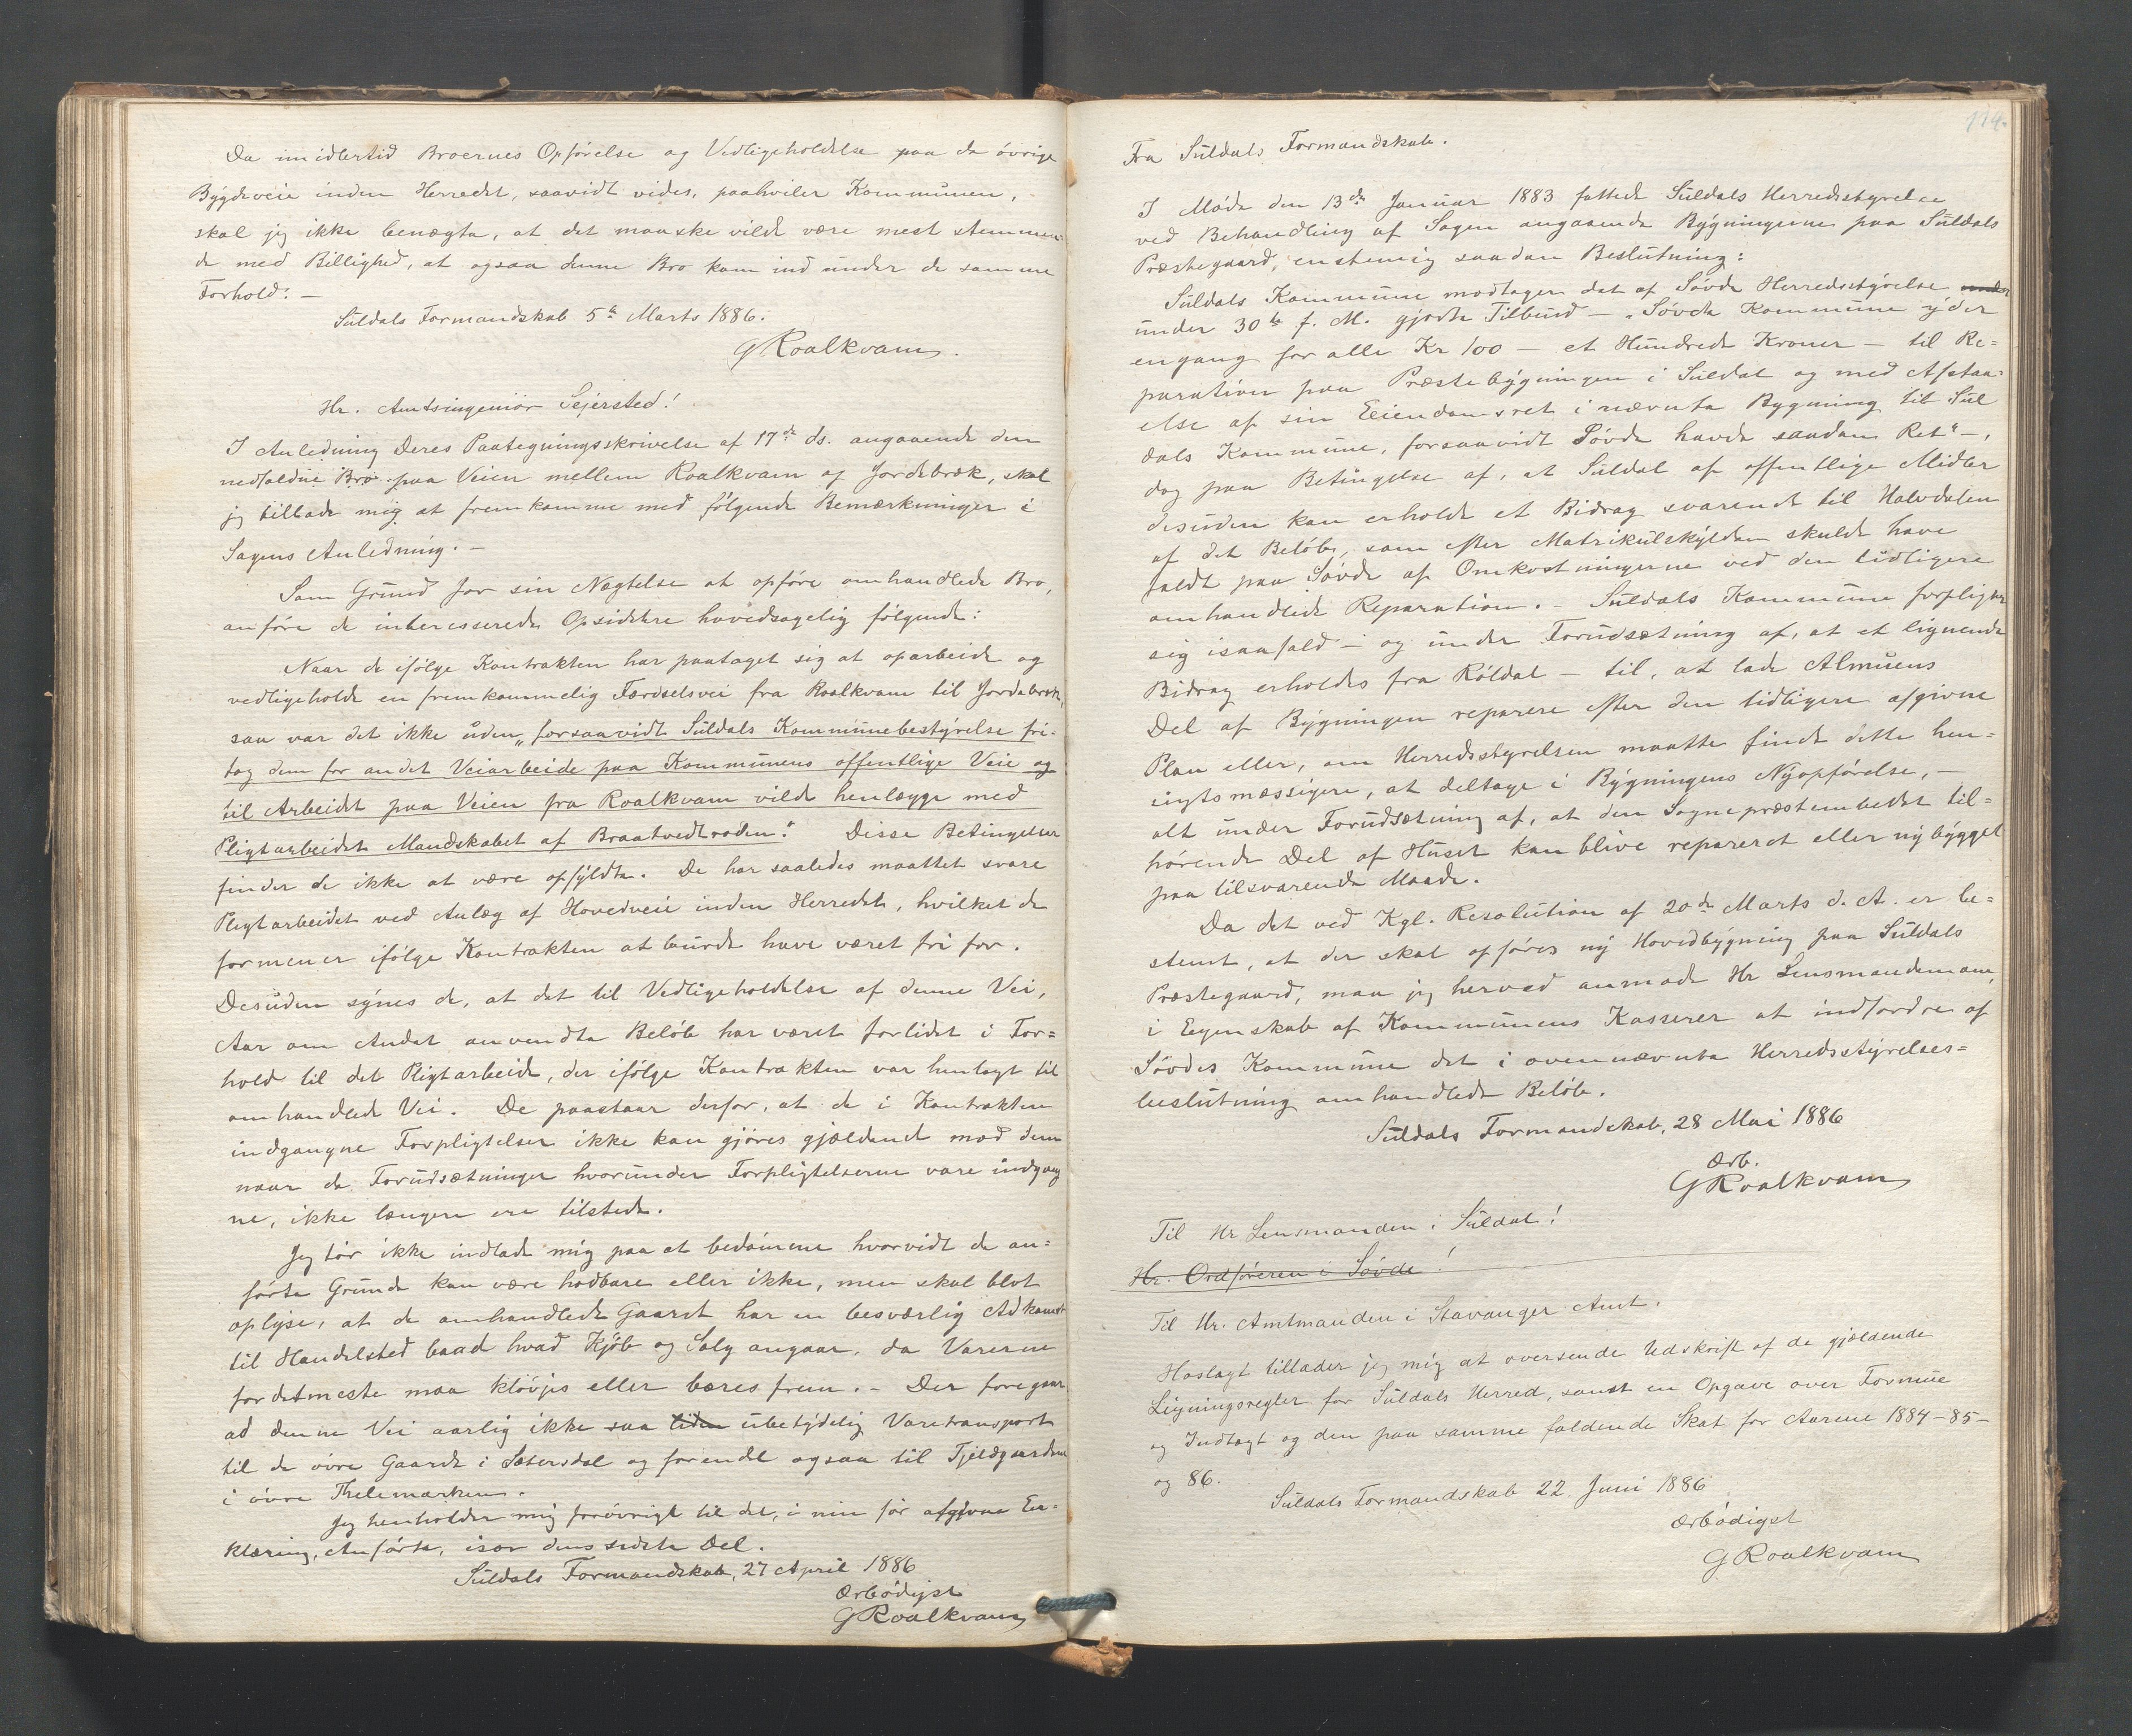 Da imidlertid Broernes Opførelse og Vedligeholdelse paa de øvrige
Bygdeveie inden Herredet, saavidt vides, paahviler Kommunen,
skal jeg ikke benægte, at det maaske vilde være mest stemmen
de med Billighed, at ogsaa denne Bro kom ind under de samme
Forhold. –
Suldals Formandskab 5te Marts 1886.
G Roalkvam.
Hr. Amtsingeniør Sejersted!
I Anledning Deres Paategningsskrivelse af 17de ds. angaaende den
nedfaldne Bro paa Veien mellem Roalkvam og Jordebræk, skal
jeg tillade mig at fremkomme med følgende Bemærkninger i
Sagens Anledning. –
Som Grund for sin Nægtelse at opføre omhandlede Bro,
anføre de interesserede Opsiddere hovedsagelig følgende:
Naar de ifølge Kontrakten har paataget sig at oparbeide og
vedligeholde en fremkommelig Færdselsvei fra Roalkvam til Jordebræk,
saa var det ikke uden „forsaavidt Suldals Kommunebestyrelse fri-
tog dem for andet Veiarbeide paa Kommunens offentlige Veie og
til Arbeidet paa Veien fra Roalkvam vilde henlægge med
Pligtarbeidet Mandskabet af Braatvedtroden." Disse Betingelser
finder de ikke at være opfyldte. De har saaledes maattet svare
Pligtarbeidet ved Anlæg af Hovedveie inden Herredet, hvilket de
formener ifølge Kontrakten at burde have været fri for.
Desuden synes de, at det til Vedligeholdelse af denne Vei,
Aar om Andet anvendte Beløb har været forlidet i For=
hold til det Pligtarbeide, der ifølge Kontrakten var henlagt til
omhandlede Vei. De paastaar derfor, at de i Kontrakten
indgangne Forpligtelser ikke kan gjøres gjældende mod dem
naar de Forudsætninger hvorunder Forpligtelserne vare indgang
ne, ikke længere ere tilstede.
Jeg tør ikke indlade mig paa at bedømme hvorvidt de an=
førte Grunde kan være holdbare eller ikke, men skal blot
oplyse, at de omhandlede Gaarde har en besværlig Adkomst
til Handelsted baade hvad Kjøb og Salg angaar, da Varerne
for detmeste maa kløvjes eller bæres frem. – Der foregaar
ad denne Vei aarlig ikke saa liden ubetydelig Varetransport
til de øvre Gaarde i Sætersdal og forendel ogsaa til Fjeldgaardene
i øvre Thelemarken.
Jeg henholder mig forøvrigt til det, i min før afgivne Er-
klæring, Anførte, især dens sidste Del.
Suldals Formandskab, 27 April 1886
Ærbødigst
G Roalkvam
114.
Fra Suldals Formandskab.
I Møde den 13de Januar 1883 fattede Suldals Herredsstyrelse
ved Behandling af Sagen angaaende Bygningerne paa Suldals
Præstegaard, enstemig saadan Beslutning:
Suldals Kommune modtager det af Søvde Herredsstyrelse under
under 30te f. M. gjorte Tilbud – „Søvde Kommune yder
engang for alle Kr 100 – et Hundrede Kroner – til Re=
paration paa Præstebygningen i Suldal og med Afstaa-
else af sin Eiendomsret i nævnte Bygning til Sul
dals Kommune, forsaavidt Søvde havde saadan Ret" –,
dog paa Betingelse af, at Suldal af offentlige Midler
desuden kan erholde et Bidrag svarende til Halvdelen
af det Beløb, som efter Matrikulskylden skulde have
faldt paa Søvde af Omkostningerne ved den tidligere
omhandlede Reparation. – Suldals Kommune forpligter
sig isaafald – og under Forudsætning af, at et lignende
Bidrag erholdes fra Røldal – til, at lade Almuens
Del af Bygningen reparere efter den tidligere afgivne
Plan eller, om Herredsstyrelsen maatte finde dette hen=
sigtsmæssigere, at deltage i Bygningens Nyopførelse, –
alt under Forudsætning af, at den Sognepræstembedet til=
hørende Del af Huset kan blive repareret eller nybygget
paa tilsvarende Maade.
Da det ved Kgl. Resolution af 20de Marts d. A. er be=
stemt, at der skal opføres ny Hovedbygning paa Suldals
Præstegaard, maa jeg herved anmode Hr Lensmanden om,
i Egenskab af Kommunens Kasserer at indfordre af
Søvdes Kommune det i ovennævnte Herredsstyrelses=
beslutning omhandlede Beløb.
Suldals Formandskab, 28 Mai 1886
Ærb.
G Roalkvam
Til Hr Lensmanden i Suldal!
Hr. Ordføreren i Søvde!
Til Hr. Amtmanden i Stavanger Amt.
Hoslagt tillader jeg mig at oversende Udskrift af de gjældende
Ligningsregler for Suldals Herred, samt en Opgave over Formue
og Indtægt og den paa samme faldende Skat for Aarene 1884–85–
og 86.
Suldals Formandskab 22 Juni 1886
Ærbødigst
G Roalkvam